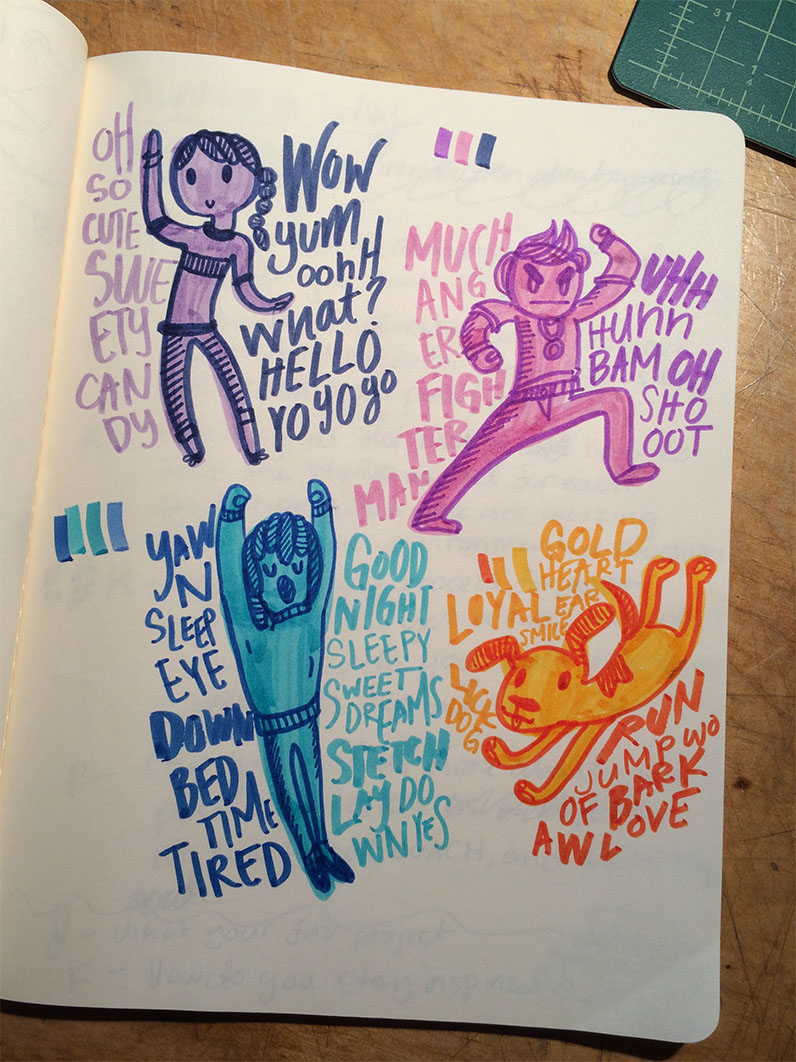 OH
SO
CUTE
SWE
ETY
CAN
DY
WOW
yum
oohH
what?
HELLO
YOYOYO
MUCH
ANG
ER
FIGH
TER
MAN
UHH
HUNN
BAM OH
SHO
OOT
YAW
N
SLEEP
EYE
DOWN
BED
TIME
TIRED
GOOD
NIGHT
SLEEPY
SWEET
DREAMS
STETCH
LAY DO
WN YES
GOLD
HEART
LOYAL EAR
SMILE
LICK
DOG
RUN
JUMP WO
OF BARK
AWL OVE
31
- What your fav project
- How do you stay inspired